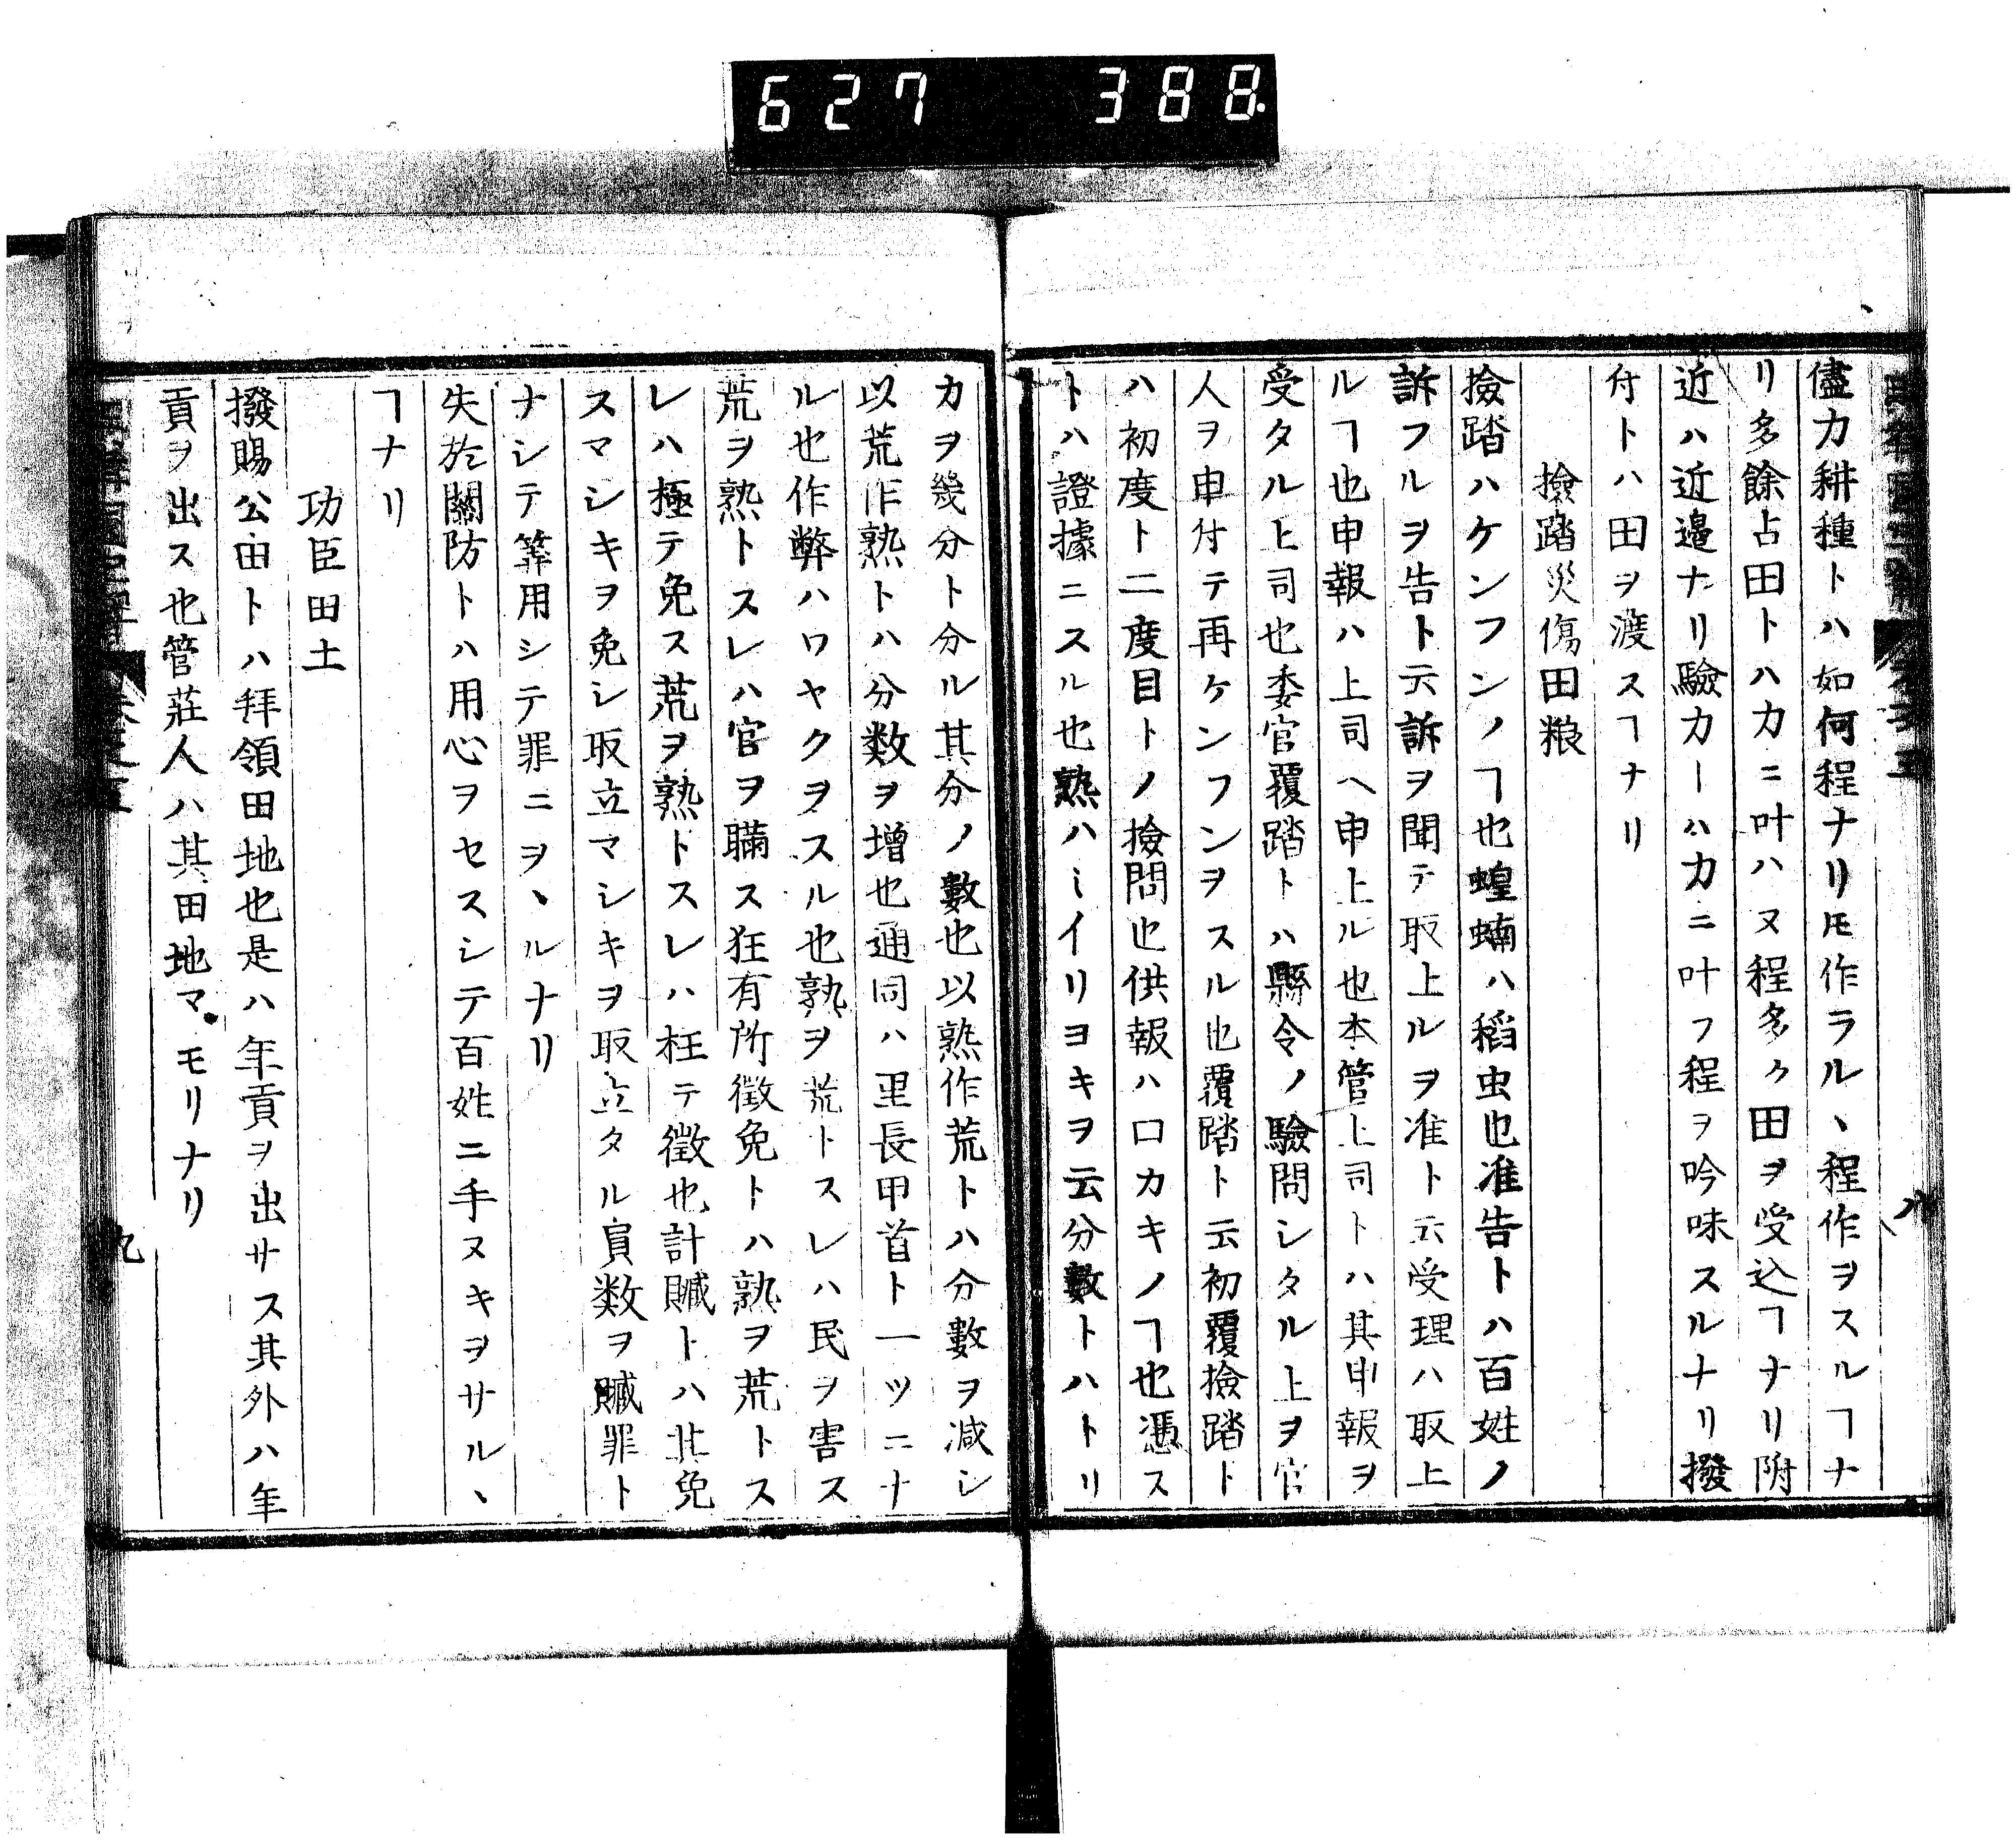 627 388
儘力耕種トハ如何程ナリ𪜈作ラル丶程作ヲスルヿナ
リ多餘占田トハカニ叶ハヌ程多ク田ヲ受込ヿナリ附
近ハ近邉ナリ驗力ーハカニ叶フ程ヲ吟味スルナリ撥
付トハ田ヲ渡スヿナリ
撿踏災傷田粮
撿踏ハケンフンノヿ也蝗蝻ハ稻虫也准告トハ百姓ノ
訴フルヲ告ト云訴ヲ聞テ取上ルヲ准ト云受理ハ取上
ルヿ也申報ハ上司ヘ申上ル也本管上司トハ其申報ヲ
受タル上司也委官覆踏トハ縣令ノ驗問シタル上ヲ官
人ヲ申付テ再ケンフンヲスル也覆踏ト云初覆撿踏ト
ハ初度ト二度目トノ撿問也供報ハ口カキノヿ也憑ス
トハ證據ニスル也熟ハミイリヨキヲ云分數トハトリ
カヲ幾分ト分ル其分ノ數也以熟作荒トハ分數ヲ减シ
以荒作熟トハ分数ヲ增也通同ハ里長甲首ト一ツニナ
ル也作弊ハワヤクヲスル也熟ヲ荒トスレハ民ヲ害ス
荒ヲ熟トスレハ官ヲ瞞ス狂有所徴免トハ熟ヲ荒トス
レハ極テ免ス荒ヲ熟トスレハ枉テ徴也計贓トハ其免
スマシキヲ免シ取立マシキヲ取立タル員数ヲ贓罪ト
ナシテ筭用シテ罪ニヲ丶ルナリ
失於關防トハ用心ヲセスシテ百姓ニ手ヌキヲサル丶
ヿナリ
功臣田土
撥賜公田トハ拜領田地也是ハ年貢ヲ出サス其外ハ年
貢ヲ出ス也管莊人ハ其田地マモリナリ
八
九